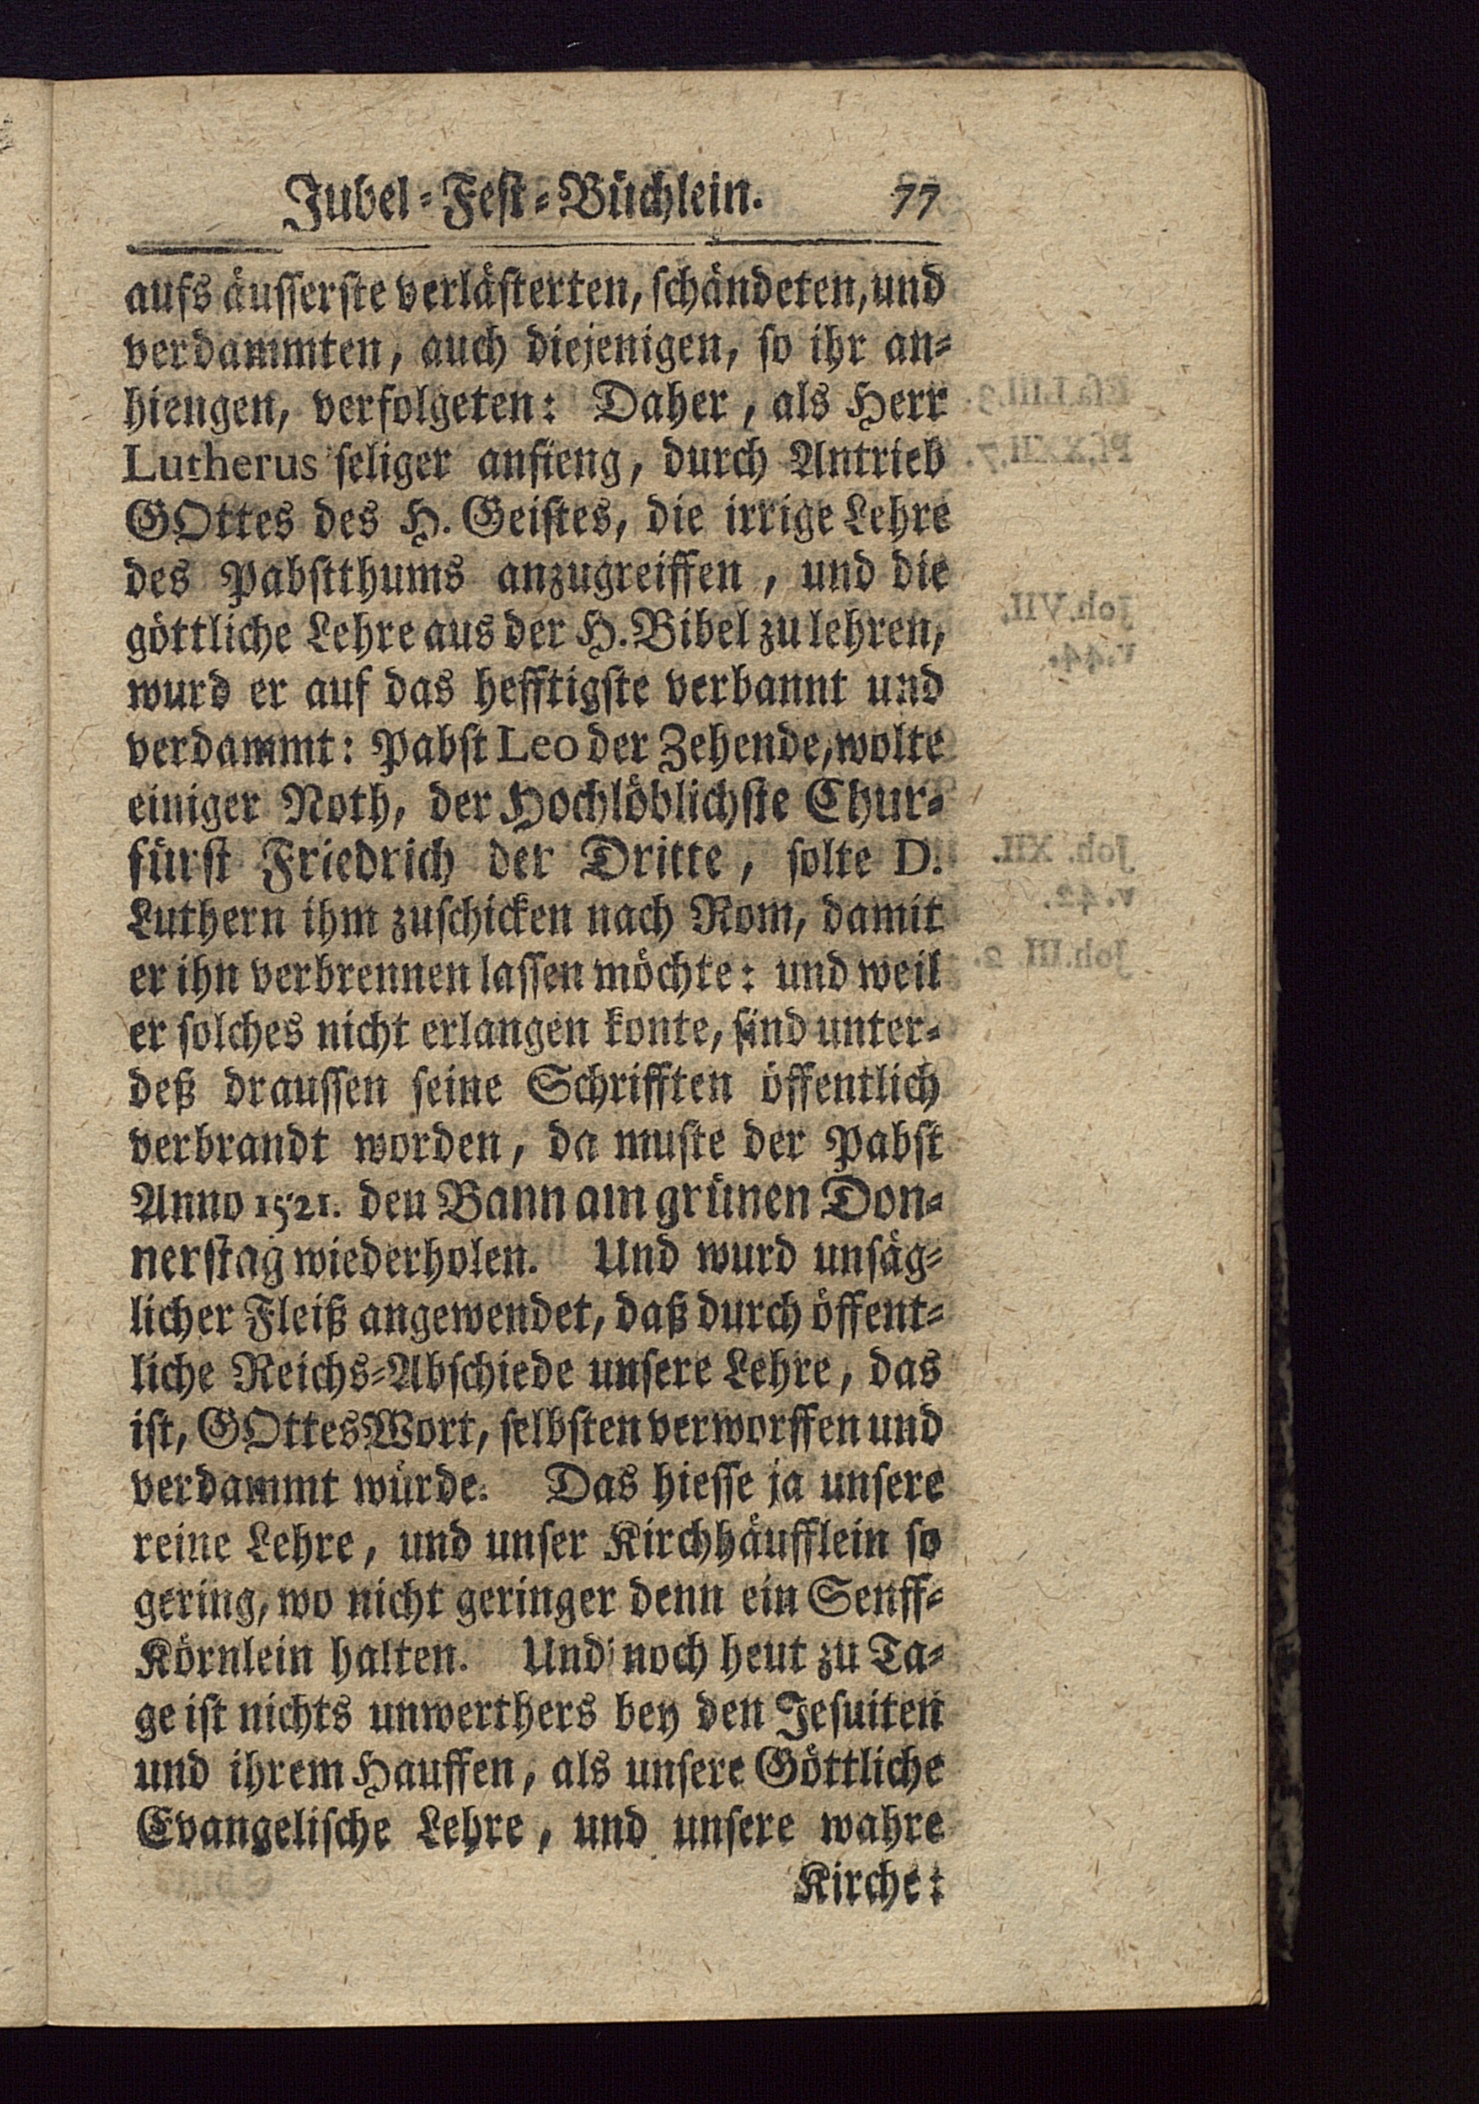 Jubel-Fest-Büchlein. 77
aufs äusserste verlästerten, schändeten, und
verdammten, auch diejenigen, so ihr an-
hiengen, verfolgeten: Daher, als Herr
Lutherus seliger anfieng, durch Antrieb
GOttes des H. Geistes, die irrige Lehre
des Pabstthums anzugreiffen, und die
göttliche Lehre aus der H. Bibel zu lehren,
wurd er auf das hefftigste verbannt und
verdammt: Pabst Leo der Zehende, wolte
einiger Noth, der Hochlöblichste Chur-
fürst Friedrich der Dritte, solte D.
Luthern ihm zuschicken nach Rom, damit
er ihn verbrennen lassen möchte: und weil
er solches nicht erlangen konte, sind unter-
deß draussen seine Schrifften öffentlich
verbrandt worden, da muste der Pabst
Anno 1521. den Bann am grünen Don-
nerstag wiederholen. Und wurd unsäg-
licher Fleiß angewendet, daß durch öffent-
liche Reichs-Abschiede unsere Lehre, das
ist, GOttes Wort, selbsten verworffen und
verdammt würde. Das hiesse ja unsere
reine Lehre, und unser Kirchhäufflein so
gering, wo nicht geringer denn ein Senff-
Körnlein halten. Und noch heut zu Ta-
ge ist nichts unwerthers bey den Jesuiten
und ihrem Hauffen, als unsere Göttliche
Evangelische Lehre, und unsere wahre
Kirche: